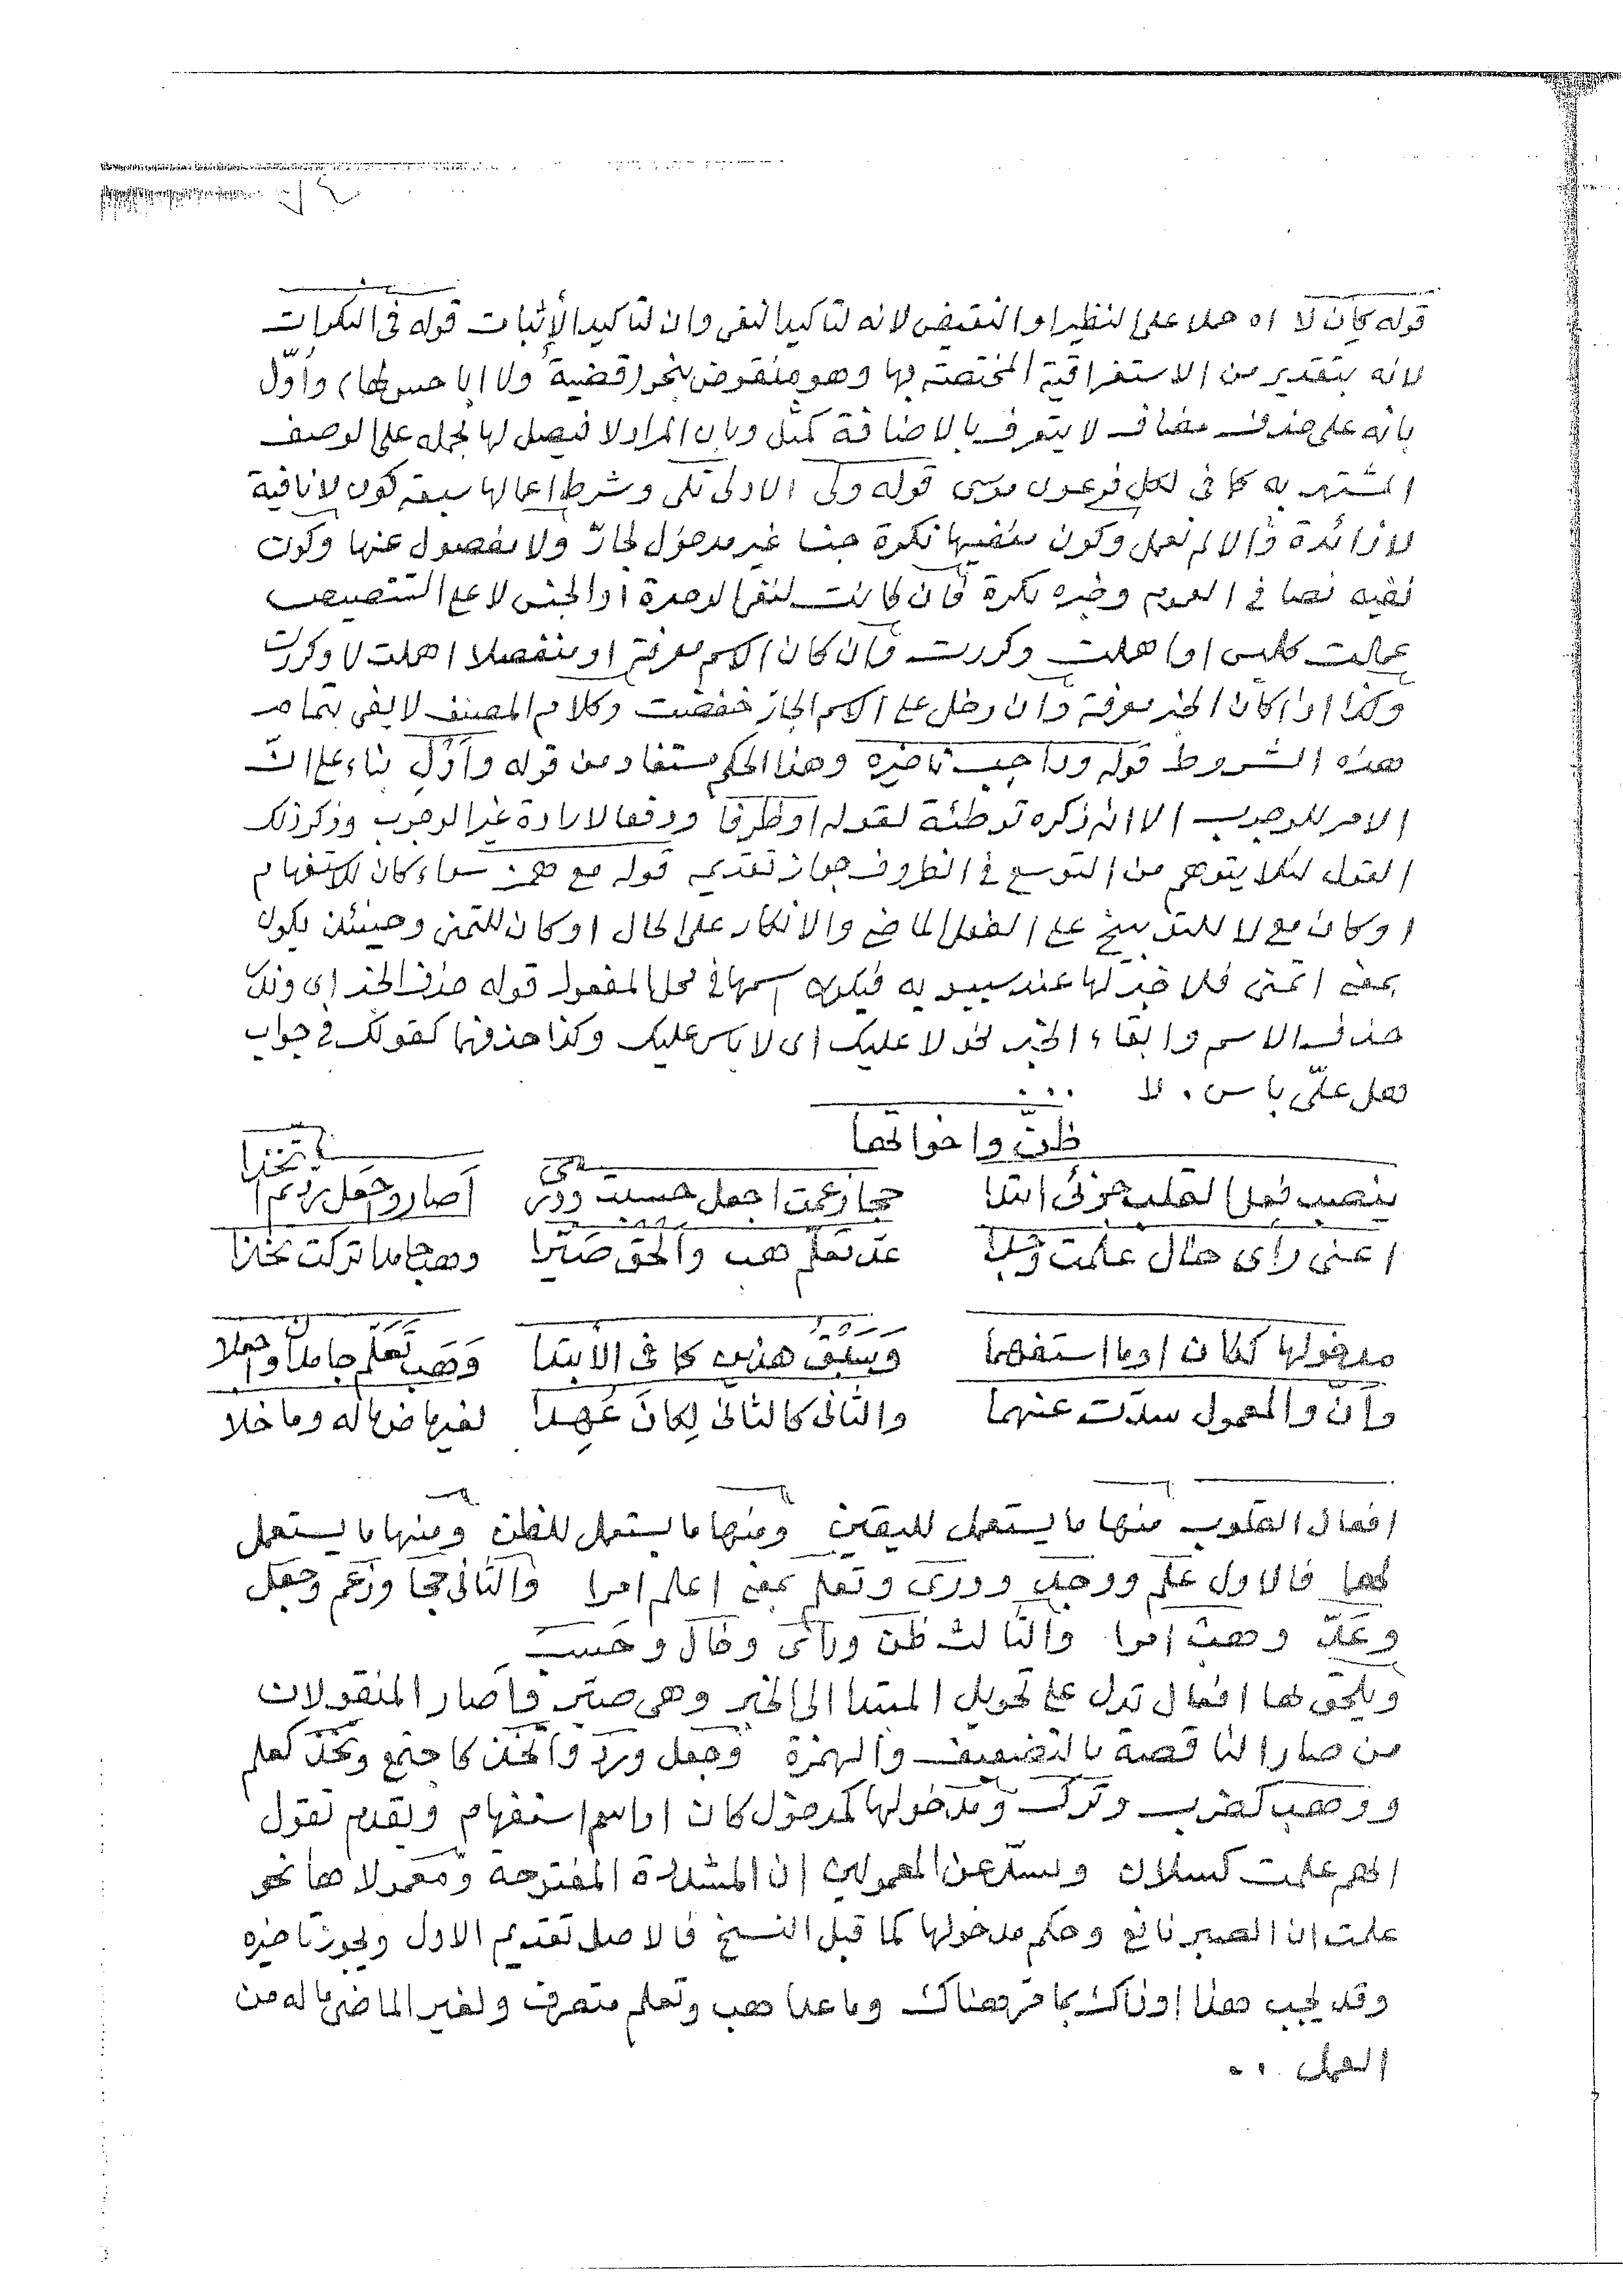 قوله كان لا اه حملا على النظير او النقيض لانه لتاكيد النفى وان لتاكيد الأثبات قوله فى النكرات
لانه بتقدير من الاستغراقية المختصة بها وهو منقوض بنحو (قضية ولا ابا حسن لها) واُوّل
بانه على حذف مضاف لا يتعرف بالاضافة كمثل وبان المراد لا فيصل لها بحمله على الوصف
المشتهر به كما فى لكل فرعون موسى قوله وفى الاولى تلى وشرط اعمالها سبعة كون لا نافية
لا زائدة والا لم تعمل وكون منفيها نكرة جنسا غير مدخول لجارّ ولا مفصول عنها وكون
نفيه نصا فى العموم وخبره نكرة فان كانت لنفى الوحدة أو الجنس لا على التنصيص
عملت كليس او اهملت وكررت وان كان الاسم معرفة او منفصلا اهملت لا وكررت
وكذا اذا كان الخبر معرفة وان دخل على الاسم الجار خفضت وكلام المصنف لا يفى بتمام
هذه الشروط قوله وواجب تاخيره وهذا الحكم مستفاد من قوله واَوّلِ بناء على انّ
الامر للوجوب الا انه ذكره توطئة لقوله او ظرفا ودفعا لارادة غير الوجوب وذكر ذلك
القول لئلا يتوهم من التوسع فى الظروف جواز تقديمه قوله مع همز سواء كان للاستفهام
او كان مع لا للتوبيخ على الفعل الماضى والانكار على الحال او كان للتمنى وحينئذ يكون
بمعنى اتمنى فلا خبر لها عند سيبويه فيكون اسمها فى محل المفعول قوله حذف الخبر اى وقلّ
حذف الاسم وابقاء الخبر نحو لا عليك اى لا باس عليك وكذا حذفهما كقولك فى جواب
هل علىّ باس ٠ لا ...
ظنّ واخواتها
ينصب فعل القلب جزئى ابتدا حجا زعمت اجعل حسبت ودرى اَصار وجَعل رد ثم اتخذا
اعنى رأى خال علمت وجدا عدّ تعلّم هب واَلحق صَيّرا وهب جامدا تركت تخذا
مدخولها ككان او ما استفهما وسَبْق هذين كما فى الأبتدا وَهَب تَعَلّم جامداً واجعلا
واَنّ والمعمول سدّت عنهما والثانى كالثانى لِكانَ عُهِدا لغيرها ضِ ما له وما خلا
افعال القلوب منها ما يستعمل لليقين ومنها ما يستعمل للظن ومنها ما يستعمل
لهما فالاول عَلِمَ ووجد ودرى وتعلّم بمعنى اعلم امرا والثانى حجا وزعم وجعل
وعَدّ وهبْ امرا والثالث ظن ورأى وخال وحَسِبَ
ويلحق لها افعال تدل على تحويل المبتدا الى الخبر وهى صيّر واَصار المنقولان
من صار الناقصة بالتضعيف والهمزة وجعل وردّ واتّخذ كاجتمع وتَخِذَ كعلم
ووهب كضرب وترك ومدخولها كمدخول كان او اسم استفهام ويقدم تقول
ايّهم علمت كسلان ويسدّ عن المعمولين ان المشددة المفتوحة ومعمولاها نحو
علمت ان الصبر نافع وحكم مدخولها كما قبل النسخ فالاصل تقديم الاول ويجوز تاخيره
وقد يجب هذا او ذاك بما مر هناك وما عدا هب وتعلم متصرف ولغير الماضى ما له من
العمل ٠٠